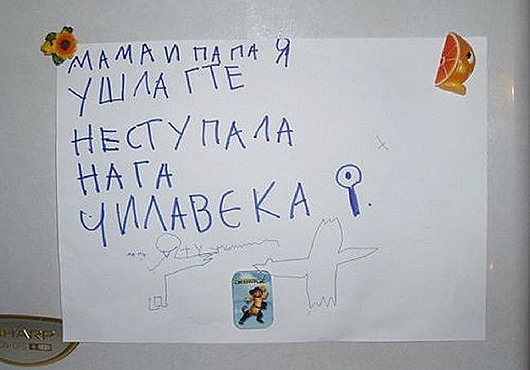 МАМА И ПАПА Я
УШЛА ГТЕ
НЕСТУПАЛА
НАГА
ЧИЛАВЕКА
SHARP